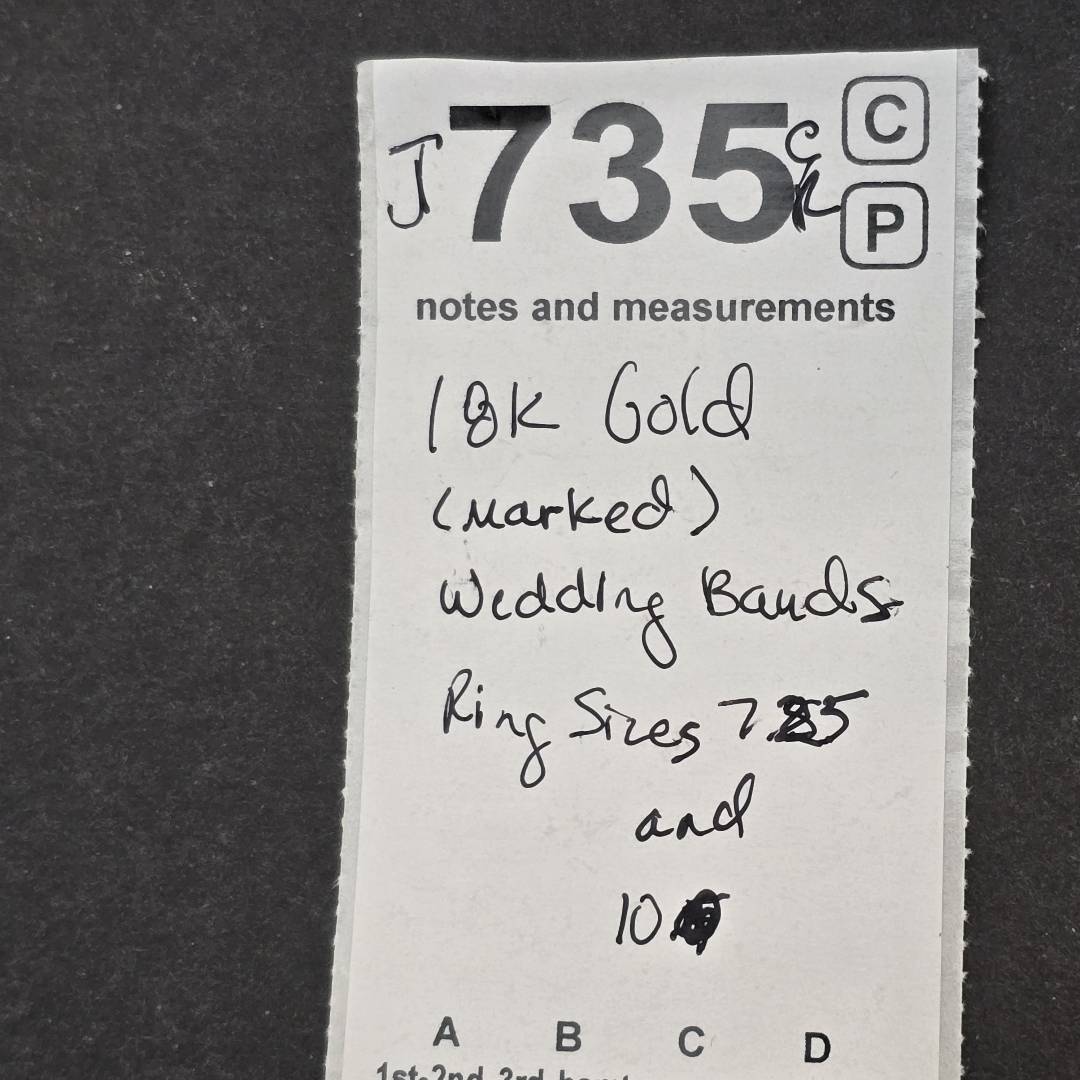 J735
C
P
notes and measurements
18K Gold
(Marked)
Wedding Bands
Ring Sizes 7.25
and
10
A B C D
1st-2nd 3rd